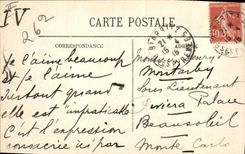 IV
262
CARTE POSTALE
CORRESPONDANCE
Je l'aime beaucoup
et je l'aime
surtout quand
elle est "impraticable"
C'est l'expression
consacrée ici par
Montarby
Sous Lieutenant
Riviera Palace
Beausoleil
Monte Carlo